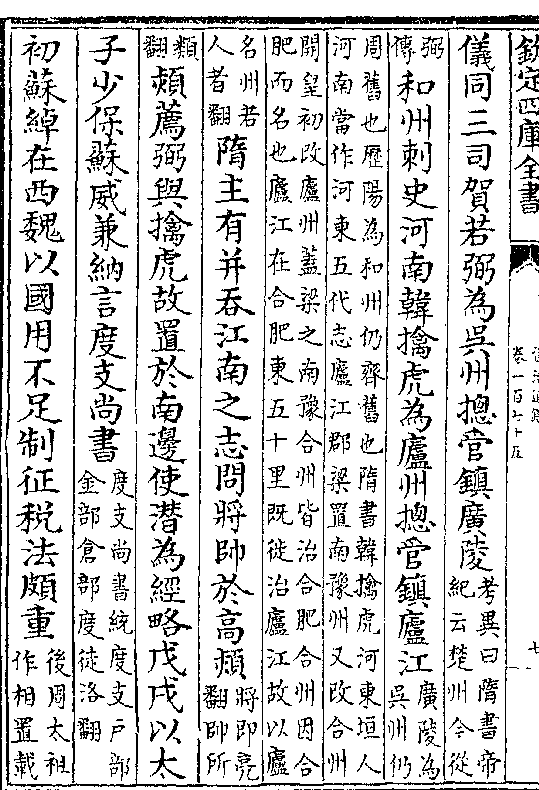 欽定四庫全書
資治通鑑
卷一百七十五
七
儀同三司賀若弼為吳州摠管鎮廣陵
考異曰隋書帝
紀云楚州今從
弼
傳
和州刺史河南韓擒虎為廬州摠管鎮廬江
廣陵為
吳州仍
周舊也歷陽為和州仍齊舊也隋書韓擒虎河東垣人
河南當作河東五代志廬江郡梁置南豫州又改合州
開皇初改廬州蓋梁之南豫合州皆治合肥合州因合
肥而名也廬江在合肥東五十里既徙治廬江故以廬
名州若
人者翻
隋主有并吞江南之志問將帥於高熲
將即亮
翻帥所
類
翻
熲薦弼與擒虎故置於南邊使潛為經略戊戌以太
子少保蘇威兼納言度支尚書
度支尚書統度支戶部
金部倉部度徒洛翻
初蘇綽在西魏以國用不足制征稅法頗重
後周太祖
作相置載